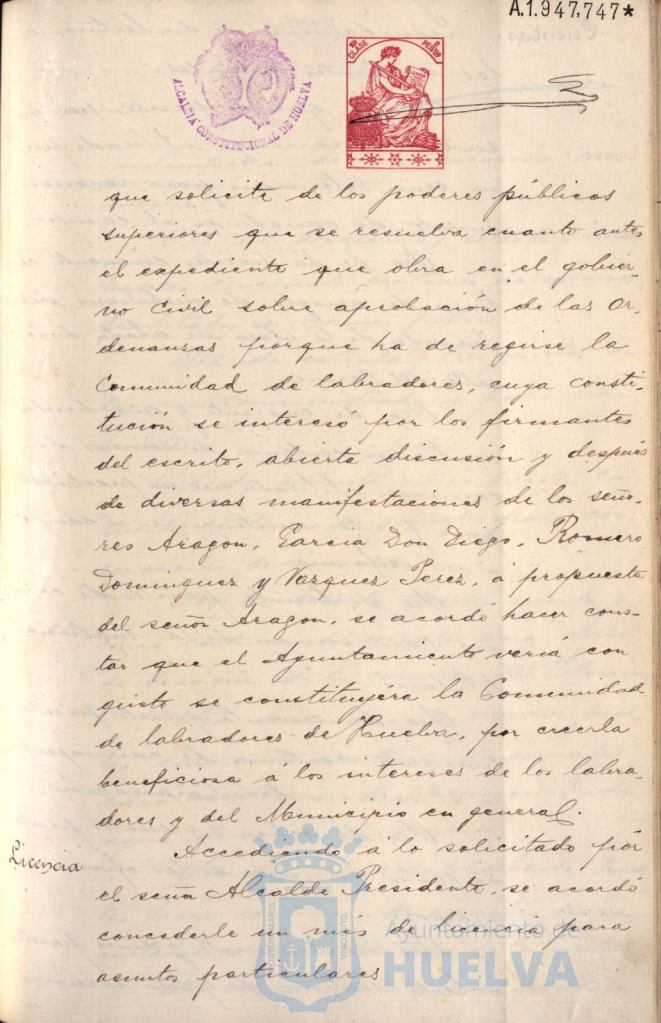 A.1.947.747*
ALCALDIA CONSTITUCIONAL DE HUELVA
10ª CLASE
2 PESETAS
que solicite de los poderes públicos
superiores que se resuelva cuanto antes
el expediente que obra en el gobier-
no Civil sobre aprobación de las Or-
denanzas porque ha de regirse la
Comunidad de labradores, cuya consti-
tución se interesó por los firmantes
del escrito, abierta discusión y después
de diversas manifestaciones de los seño-
res Aragon, Garcia Don Diego, Romero
Dominguez y Vazquez Perez, á propuesta
del señor Aragon, se acordó hacer cons-
tar que el Ayuntamiento veria con
gusto se constituyéra la Comunidad
de labradores de Huelva, por creerla
beneficiosa á los intereses de los labra-
dores y del Municipio en general.
Licencia
Accediendo á lo solicitado por
el señor Alcalde Presidente, se acordó
concederle un mes de licencia para
asuntos particulares
PORTUS MARIS
CUSTODIA
Ayuntamiento de
HUELVA